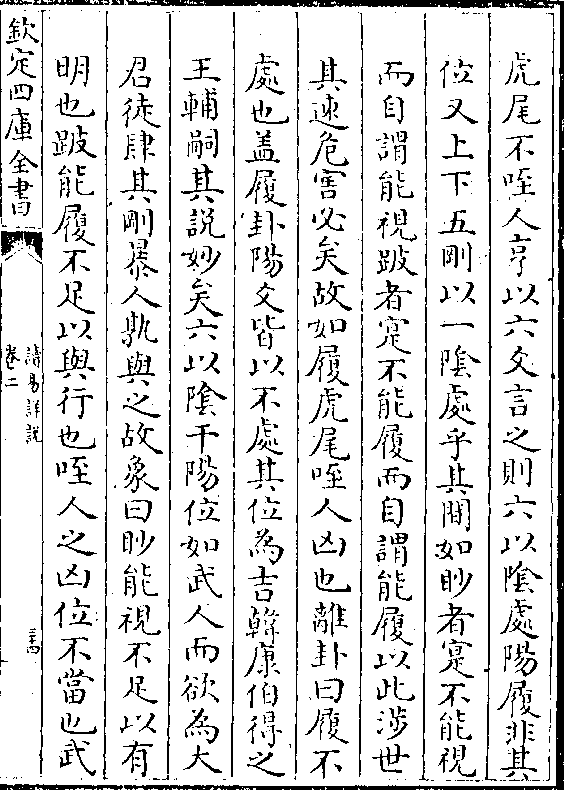 虎尾不咥人亨以六爻言之則六以陰處陽履非其
位又上下五剛以一陰處乎其間如眇者寔不能視
而自謂能視跛者寔不能履而自謂能履以此涉世
其速危害必矣故如履虎尾咥人凶也離卦曰履不
處也盖履卦陽爻皆以不處其位為吉韓康伯得之
王輔嗣其說妙矣六以陰干陽位如武人而欲為大
君徒肆其剛暴人孰與之故象曰眇能視不足以有
明也跛能履不足以與行也咥人之凶位不當也武
欽定四庫全書
讀易詳說
卷二